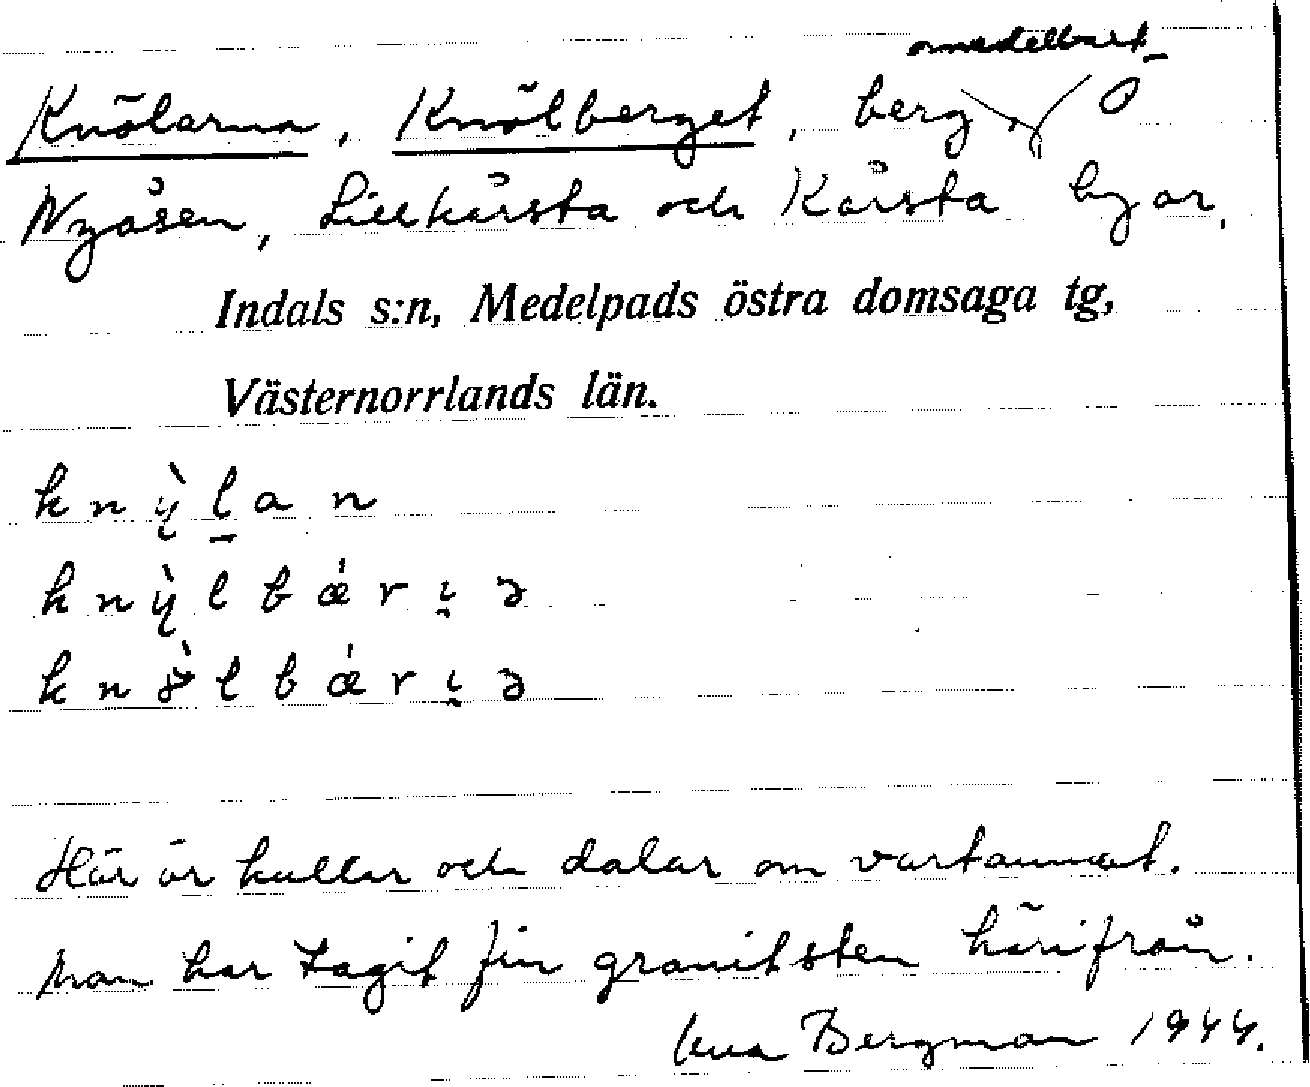 omedelbart
Knölarna, Knölberget, berg Ö
Nyåsen, Lillkårsta och Kårsta byar.
Indals s:n, Medelpads östra domsaga tg,
Västernorrlands län.
Här är kullar och dalar om vartannat.
Man har tagit fin granitsten härifrån.
Bergman 1944.